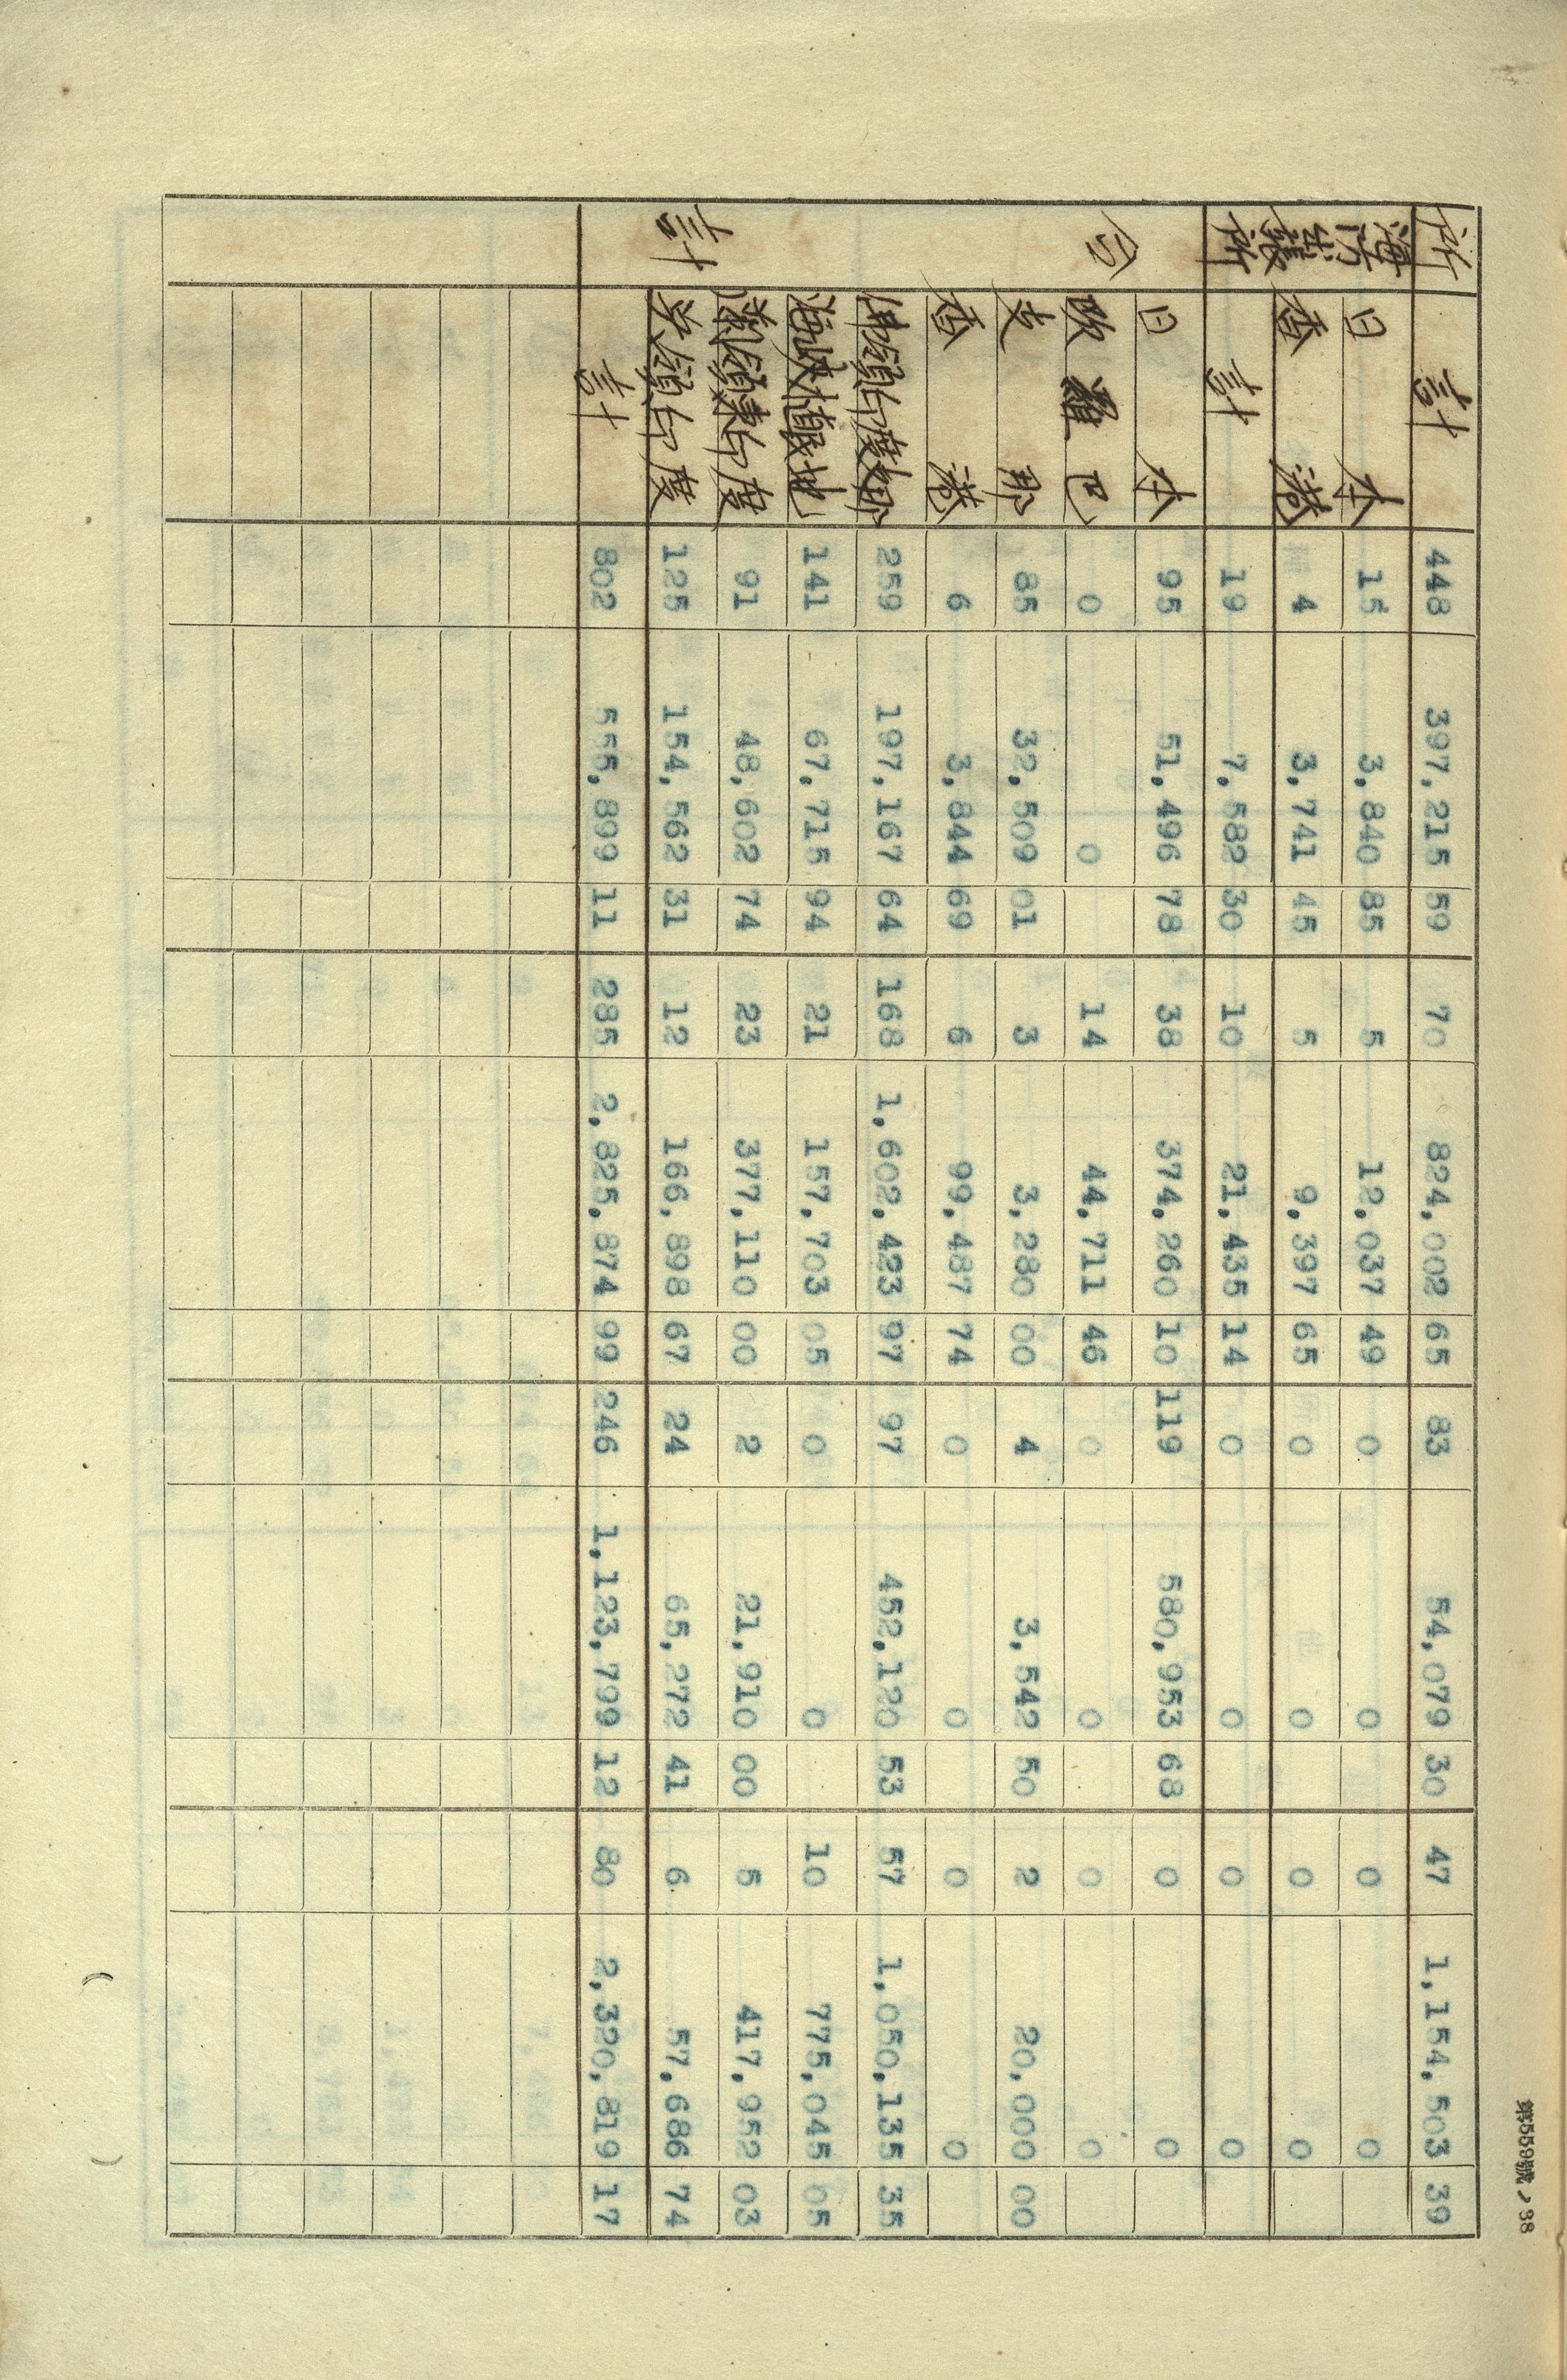 所 計 448 397,215 59 70 824,002 65 83 54,079 30 47 1,154,503 39
海防出張所 日本 15 3,840 85 5 12,037 49 0 0 0 0
香港 4 3,741 45 5 9,397 65 0 0 0 0
計 19 7,582 30 10 21,435 14 0 0 0 0
合計 日本 95 51,496 78 38 374,260 10 119 580,953 68 0 0
欧羅巴 0 0 14 44,711 46 0 0 0 0
支那 85 32,509 01 3 3,280 00 4 3,542 50 2 20,000 00
香港 6 3,844 69 6 99,487 74 0 0 0 0
佛領印度支那 259 197,167 64 168 1,602,423 97 97 452,120 53 57 1,050,135 35
海峽植民地 141 67,715 94 21 157,703 05 0 0 10 775,045 05
蘭領東印度 91 48,602 74 23 377,110 00 2 21,910 00 5 417,952 03
英領印度 125 154,562 31 12 166,898 67 24 65,272 41 6 57,686 74
計 802 555,899 11 285 2,825,874 99 246 1,123,799 12 80 2,320,819 17
第559號ノ38